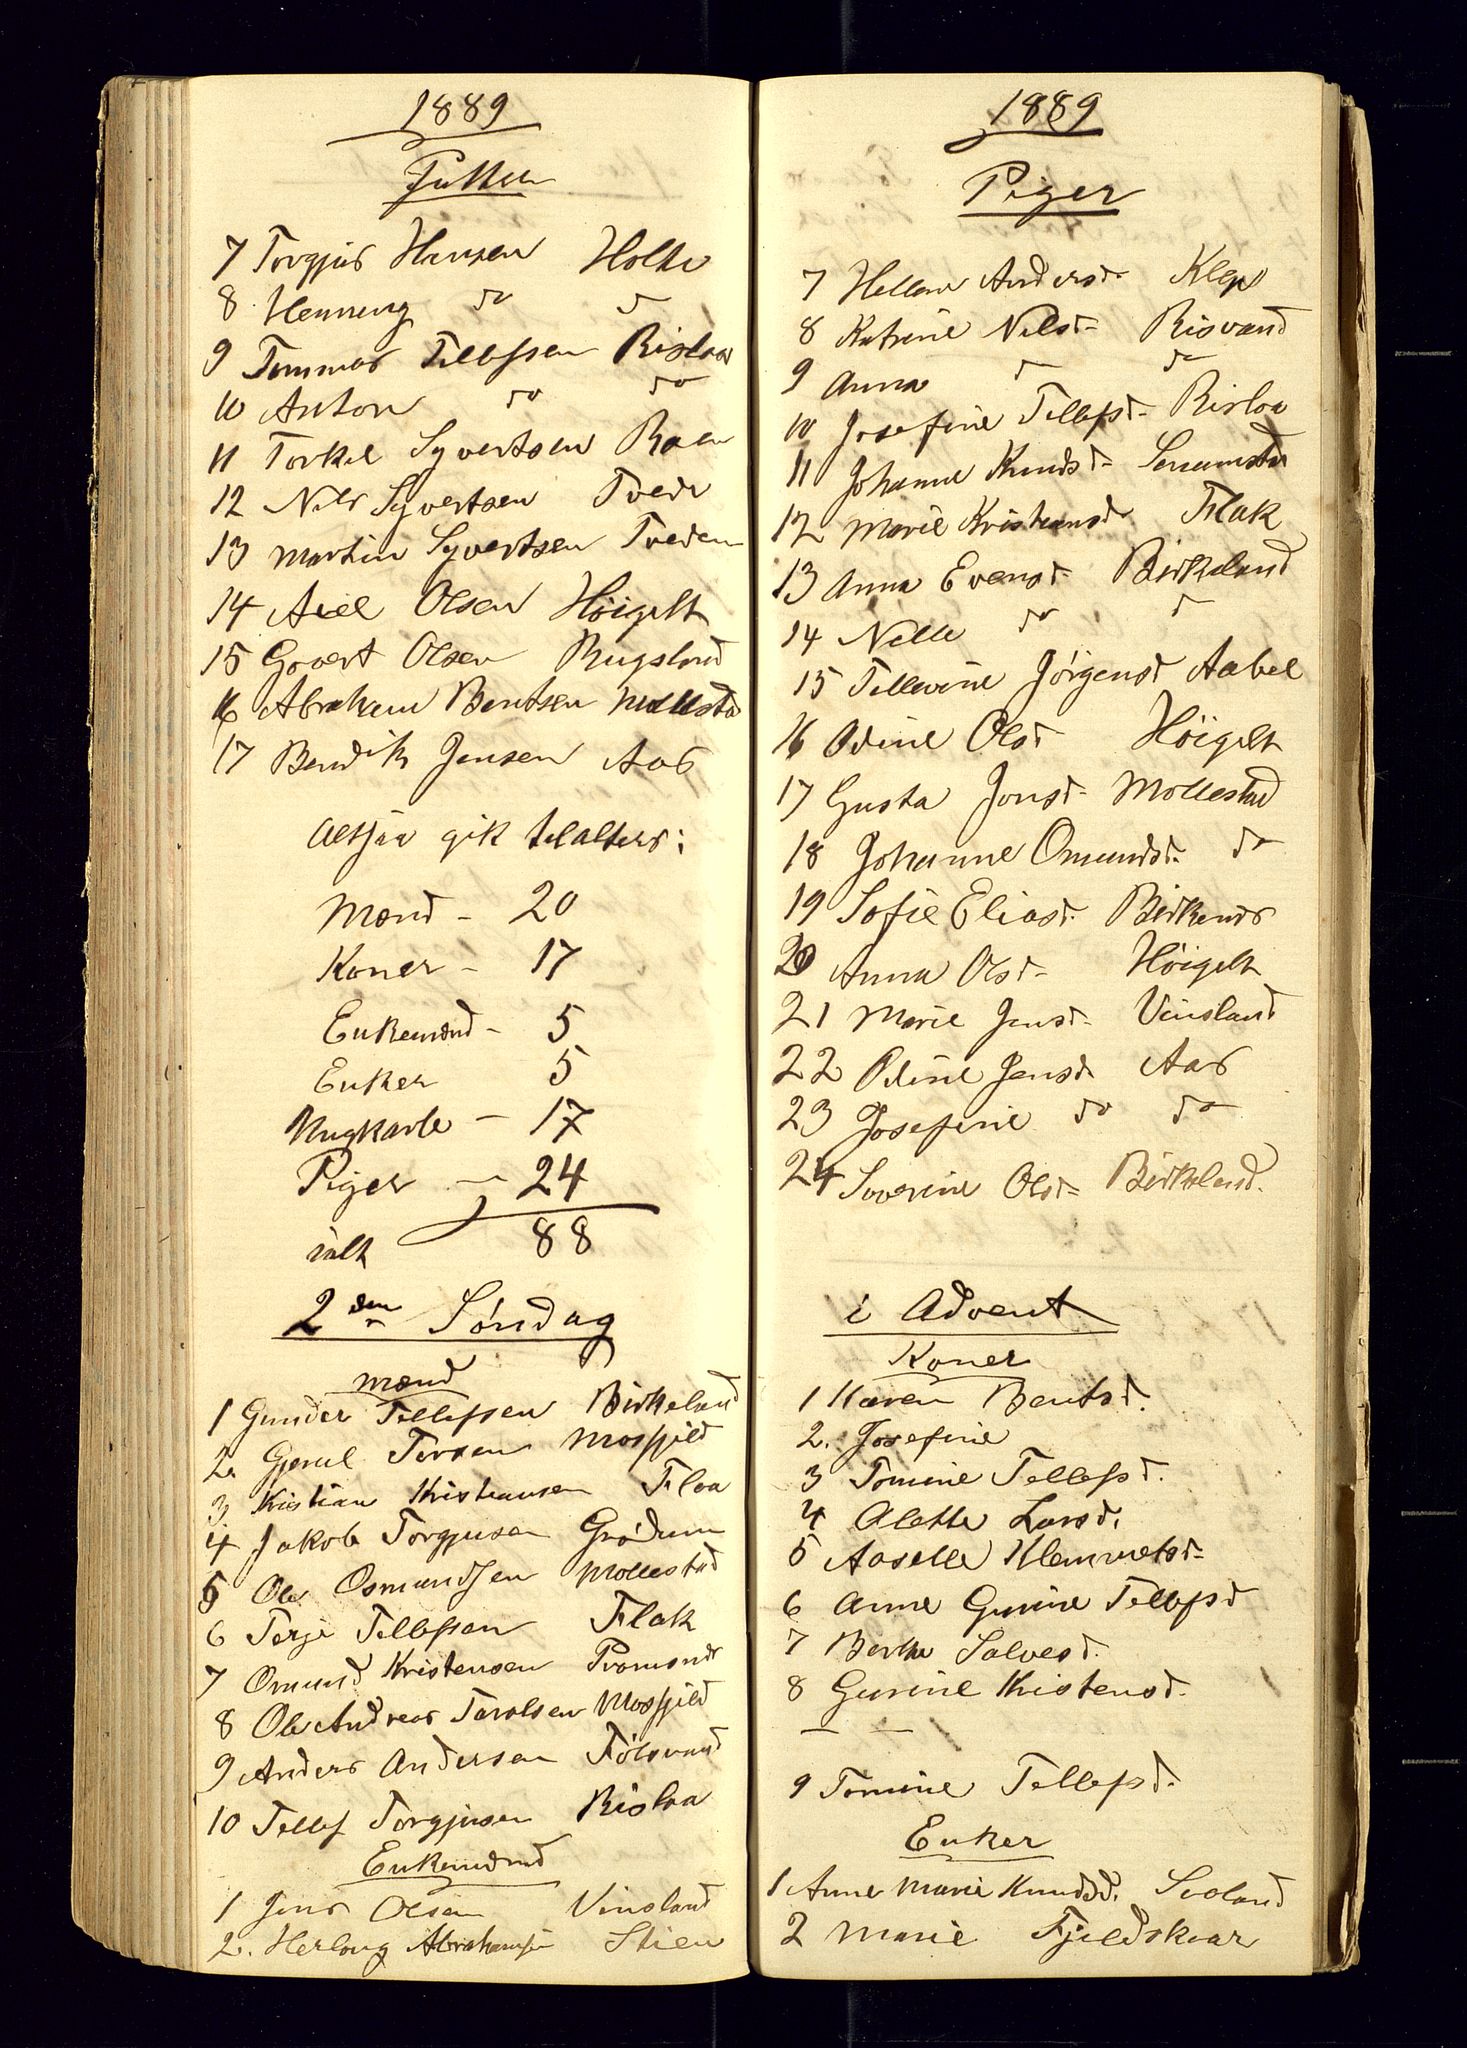 1889
Gutter
7 Torgjus Hansen Holte
8 Henning do do
9 Tommas Tellefsen Rislaa
10 Anton do do
11 Torkel Syvertsen Raen
12 Nils Syvertsen Tvede
13 Martin Syvertsen Tveden
14 Axel Olsen Höigilt
15 Govert Olsen Rugsland
16 Abraham Bentsen Mollestad
17 Bendik Jensen Aas
Altsaa gik tilalters:
Mænd - 20
Koner - 17
Enkemænd - 5
Enker 5
Ungkarle - 17
Piger - 24
ialt 88
2den Søndag
Mænd
1 Gunder Tellefsen Birkeland
2. Gjerul Tersen Mosfjeld
3 Kristian Kristiansen Flaa
4 Jakob Torgjusen Grødum
5 Ole Osmundsen Mollestad
6 Terje Tellefsen Flak
7 Omund Kristensen
8 Ole Andreas Taralsen Mosfjeld
9 Anders Andersen Fölsvand
10 Tellef Torgjusen Rislaa
Enkemænd
1 Jens Olsen Vinsland
2. Herlaug Abrahamsen Stien
1889
Piger
7 Hellene Andersd. Klep
8 Katrine Nilsd. Risvand
9 Anna do do
10 Josefine Tellefsd. Rislaa
11 Johanne Knudsd. Senumstad
12 Marie Kristiansd. Flak
13 Anna Evensd. Birkeland
14 Nille do do
15 Tellevine Jørgensd. Aabel
16 Odine Olsd. Höigilt
17 Gusta Jonsd. Mollestad
18 Johanne Omundsd. do
19 Sofie Eliasd. Birkenes
20 Anna Olsd. Höigilt
21 Marie Jensd. Vinsland
22 Odine Jensd. Aas
23 Josefine do do
24 Severine Olsd. Birkeland.
i Advent
Koner
1 Karen Bentsd.
2. Josefine
3 Tomine Tellefsd.
4 Alette Larsd.
5 Aaselle Klemmetsd.
6 Anne Gurine Tellefsd
7 Berthe Salvesd.
8 Gurine Kristensd.
— —
9 Tomine Tellefsd.
Enker
1 Anne Marie Knudsd. Svaland
2 Marie Fjeldskaar